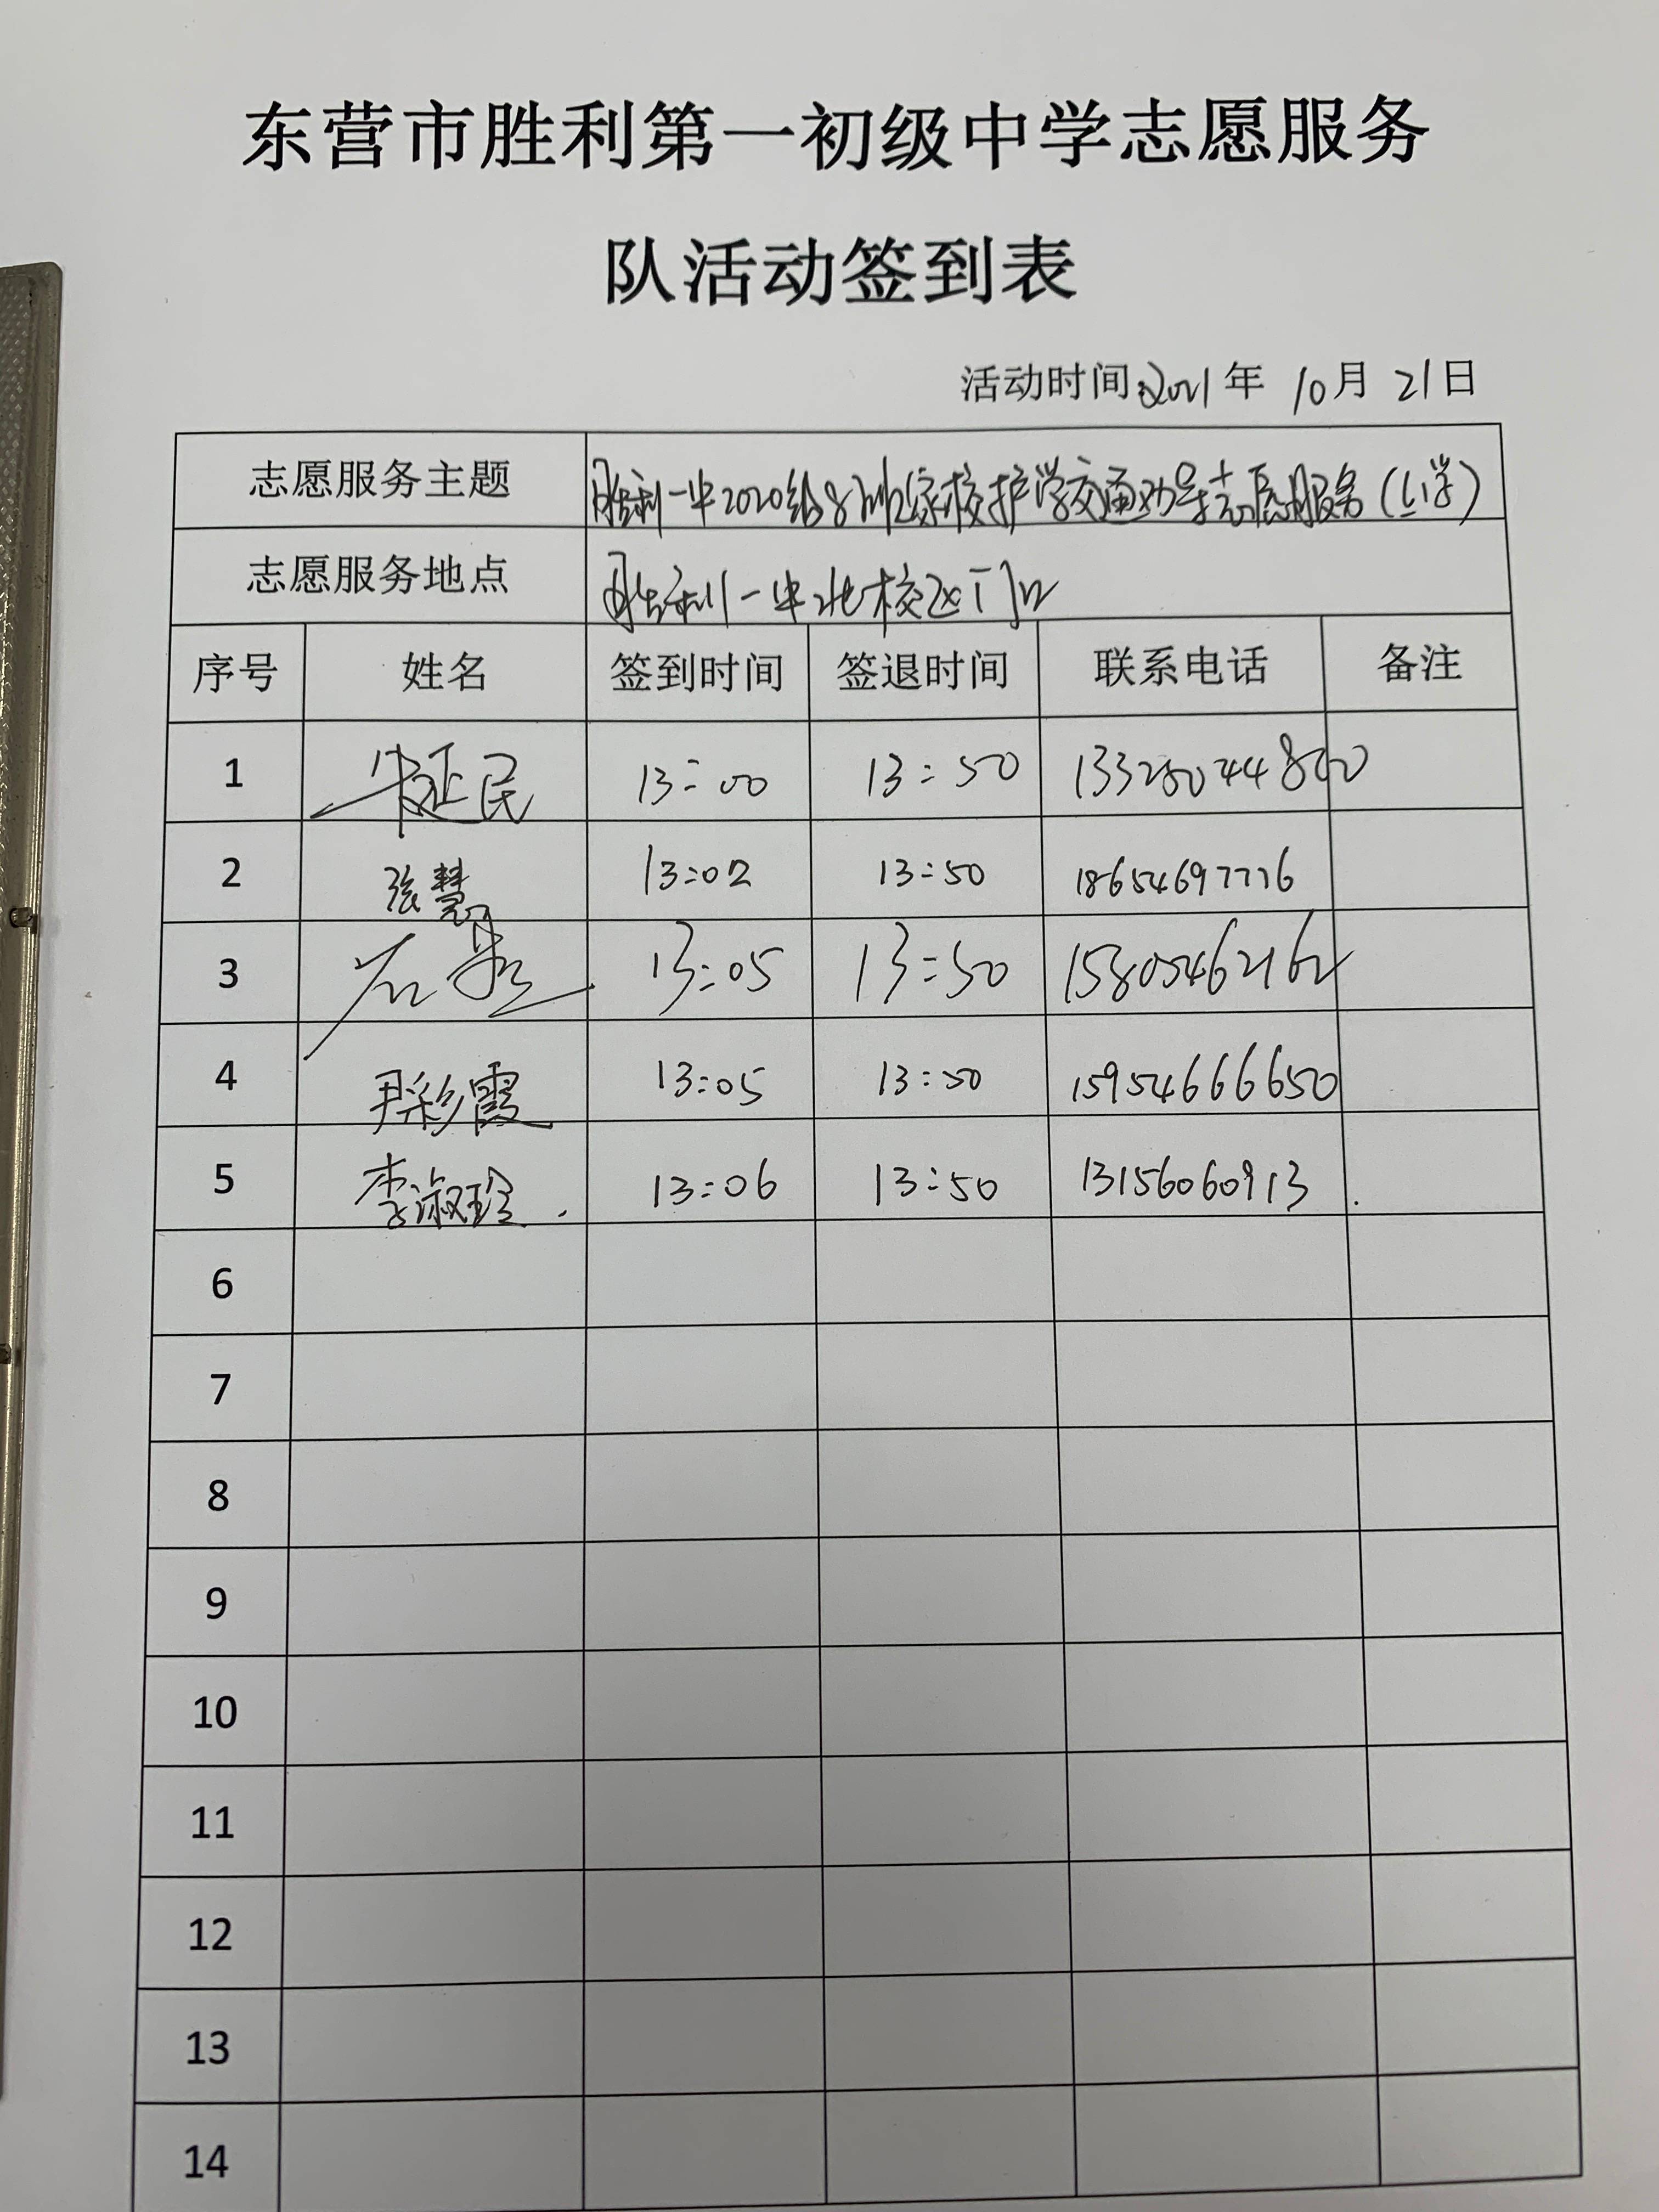 东营市胜利第一初级中学志愿服务
队活动签到表
活动时间2021年 10月 21日
志愿服务主题 胜利一中2020级8班家校护学交通劝导志愿服务(上学)
志愿服务地点 胜利一中北校区门口
序号 姓名 签到时间 签退时间 联系电话 备注
1 民 13:00 13:50
2 张慧 13:02 13:50 18654697776
3 石 13:05 13:50 15805462162
4 尹彩霞 13:05 13:50 15954666650
5 李淑珍. 13:06 13:50 13156060913 .
6
7
8
9
10
11
12
13
14